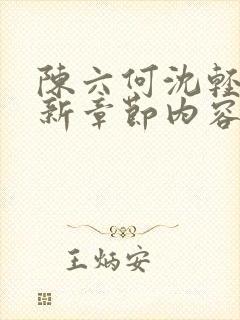 陳六何沈輕
新章節内容
王炳安